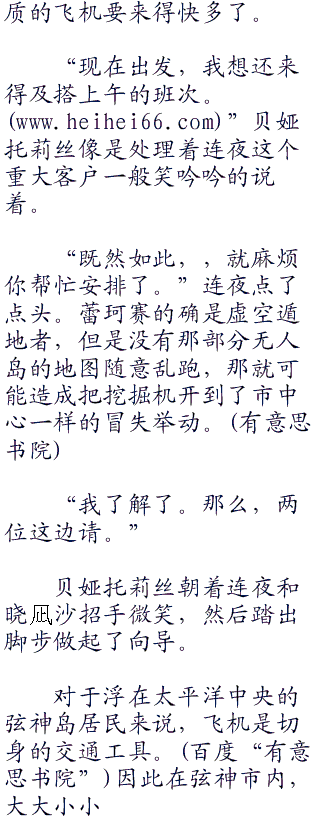 质的飞机要来得快多了。
“现在出发，我想还来
得及搭上午的班次。
(www.heihei66.com)”贝娅
托莉丝像是处理着连夜这个
重大客户一般笑吟吟的说
着。
“既然如此，，就麻烦
你帮忙安排了。”连夜点了
点头。蕾珂赛的确是虚空遁
地者，但是没有那部分无人
岛的地图随意乱跑，那就可
能造成把挖掘机开到了市中
心一样的冒失举动。(有意思
书院)
“我了解了。那么，两
位这边请。”
贝娅托莉丝朝着连夜和
晓凪沙招手微笑，然后踏出
脚步做起了向导。
对于浮在太平洋中央的
弦神岛居民来说，飞机是切
身的交通工具。(百度“有意
思书院”)因此在弦神市内，
大大小小